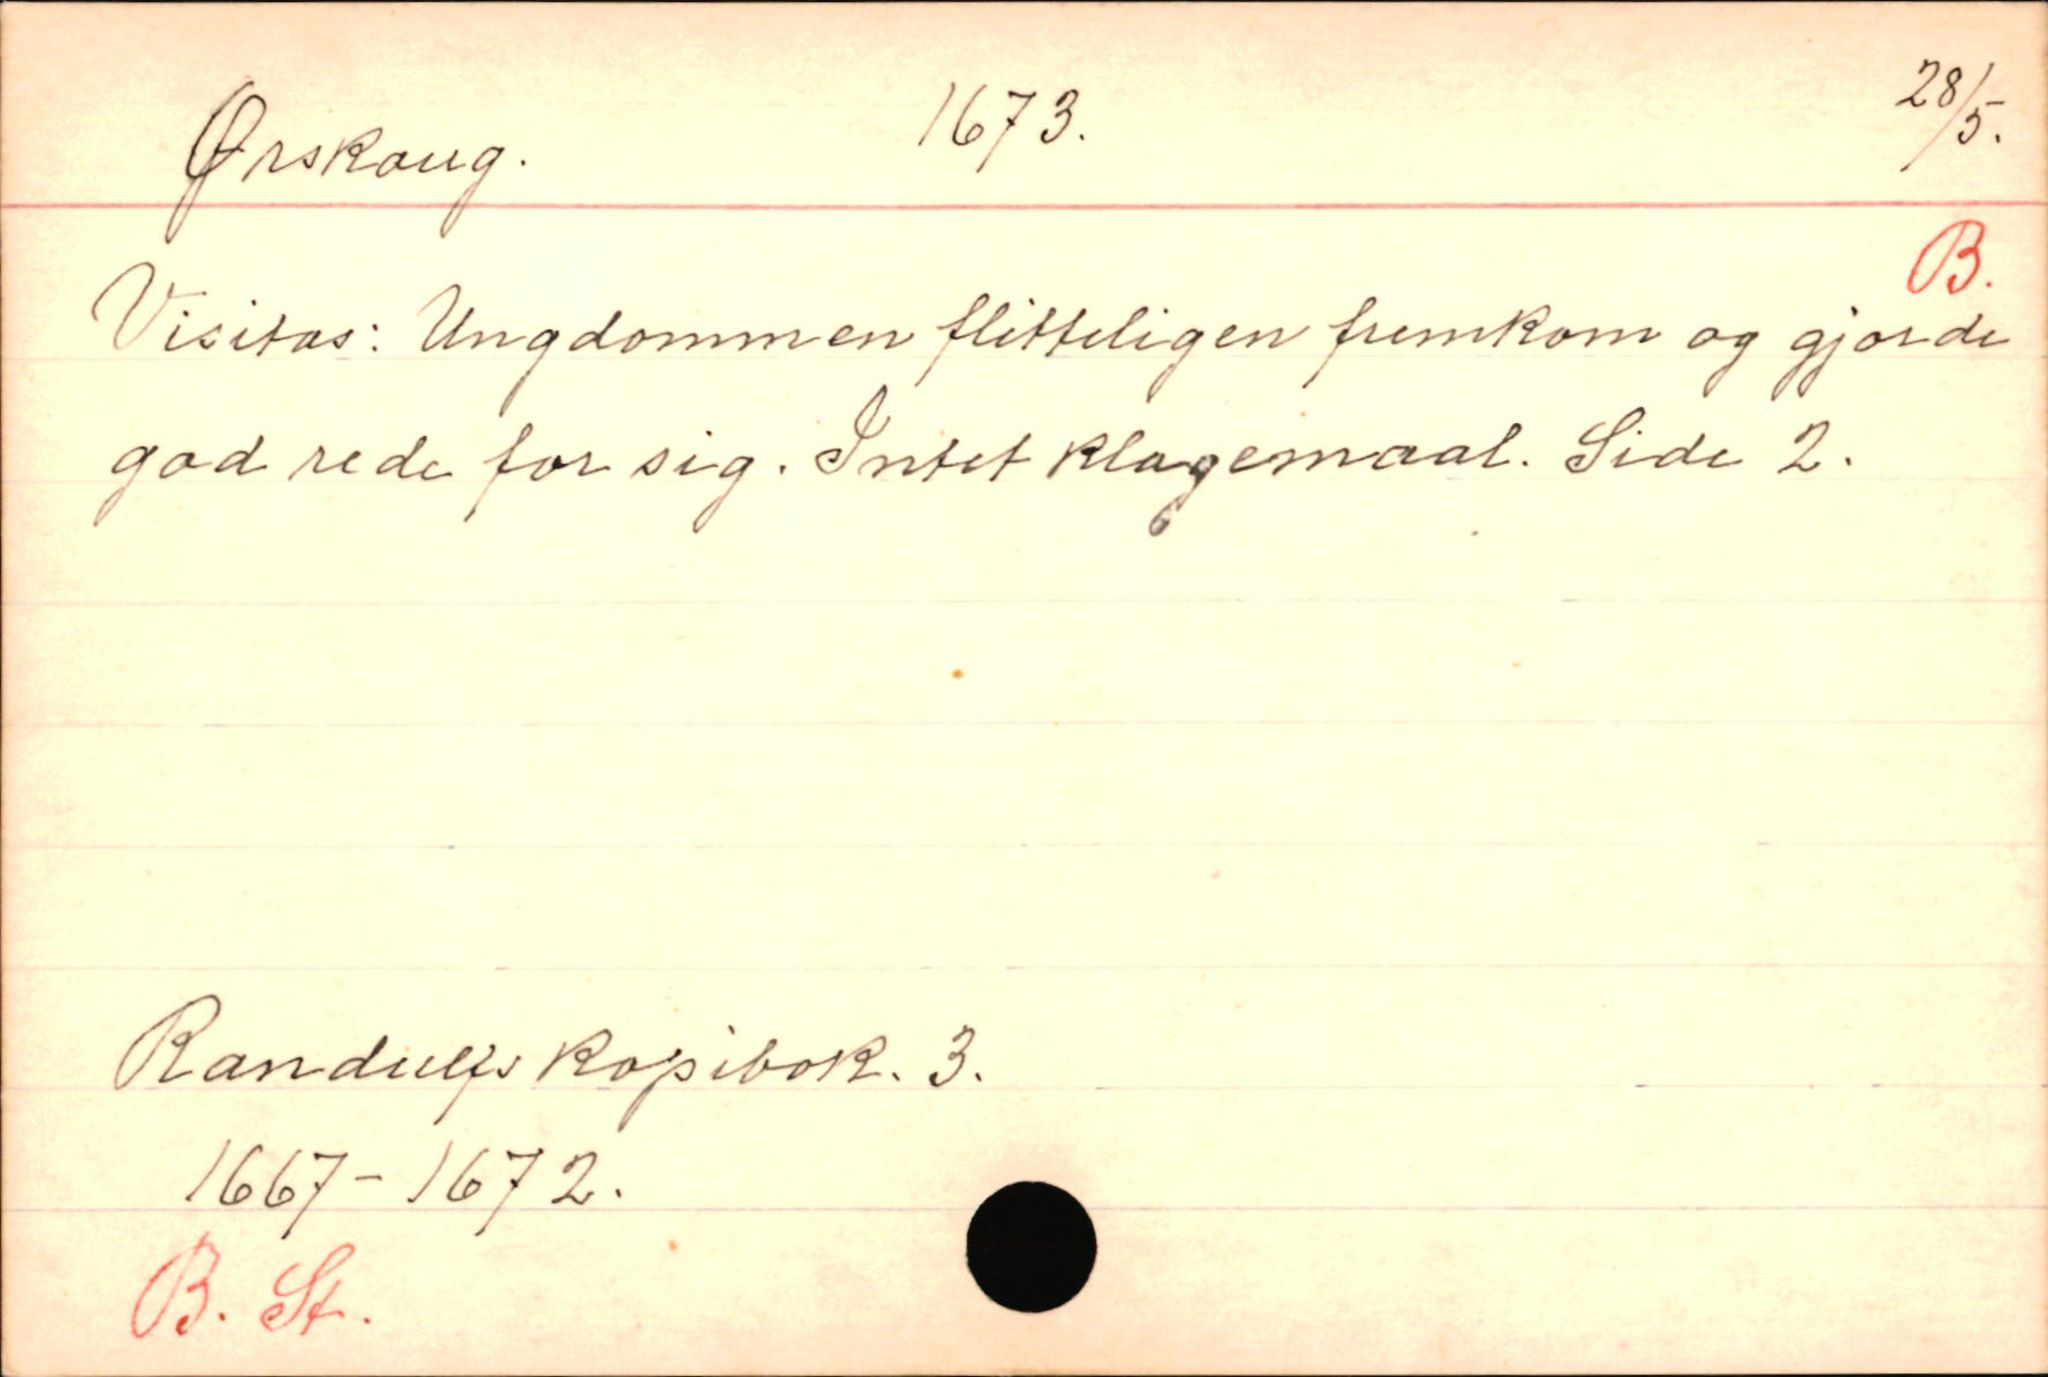 Ørskoug. 1673. 28/5.
B.
Visitas: Ungdommen flitteligen fremkom og gjorde
god rede for sig. Intet klagemaal. Side 2.
Randulfs kopibok. 3.
1667-1672.
B. St.